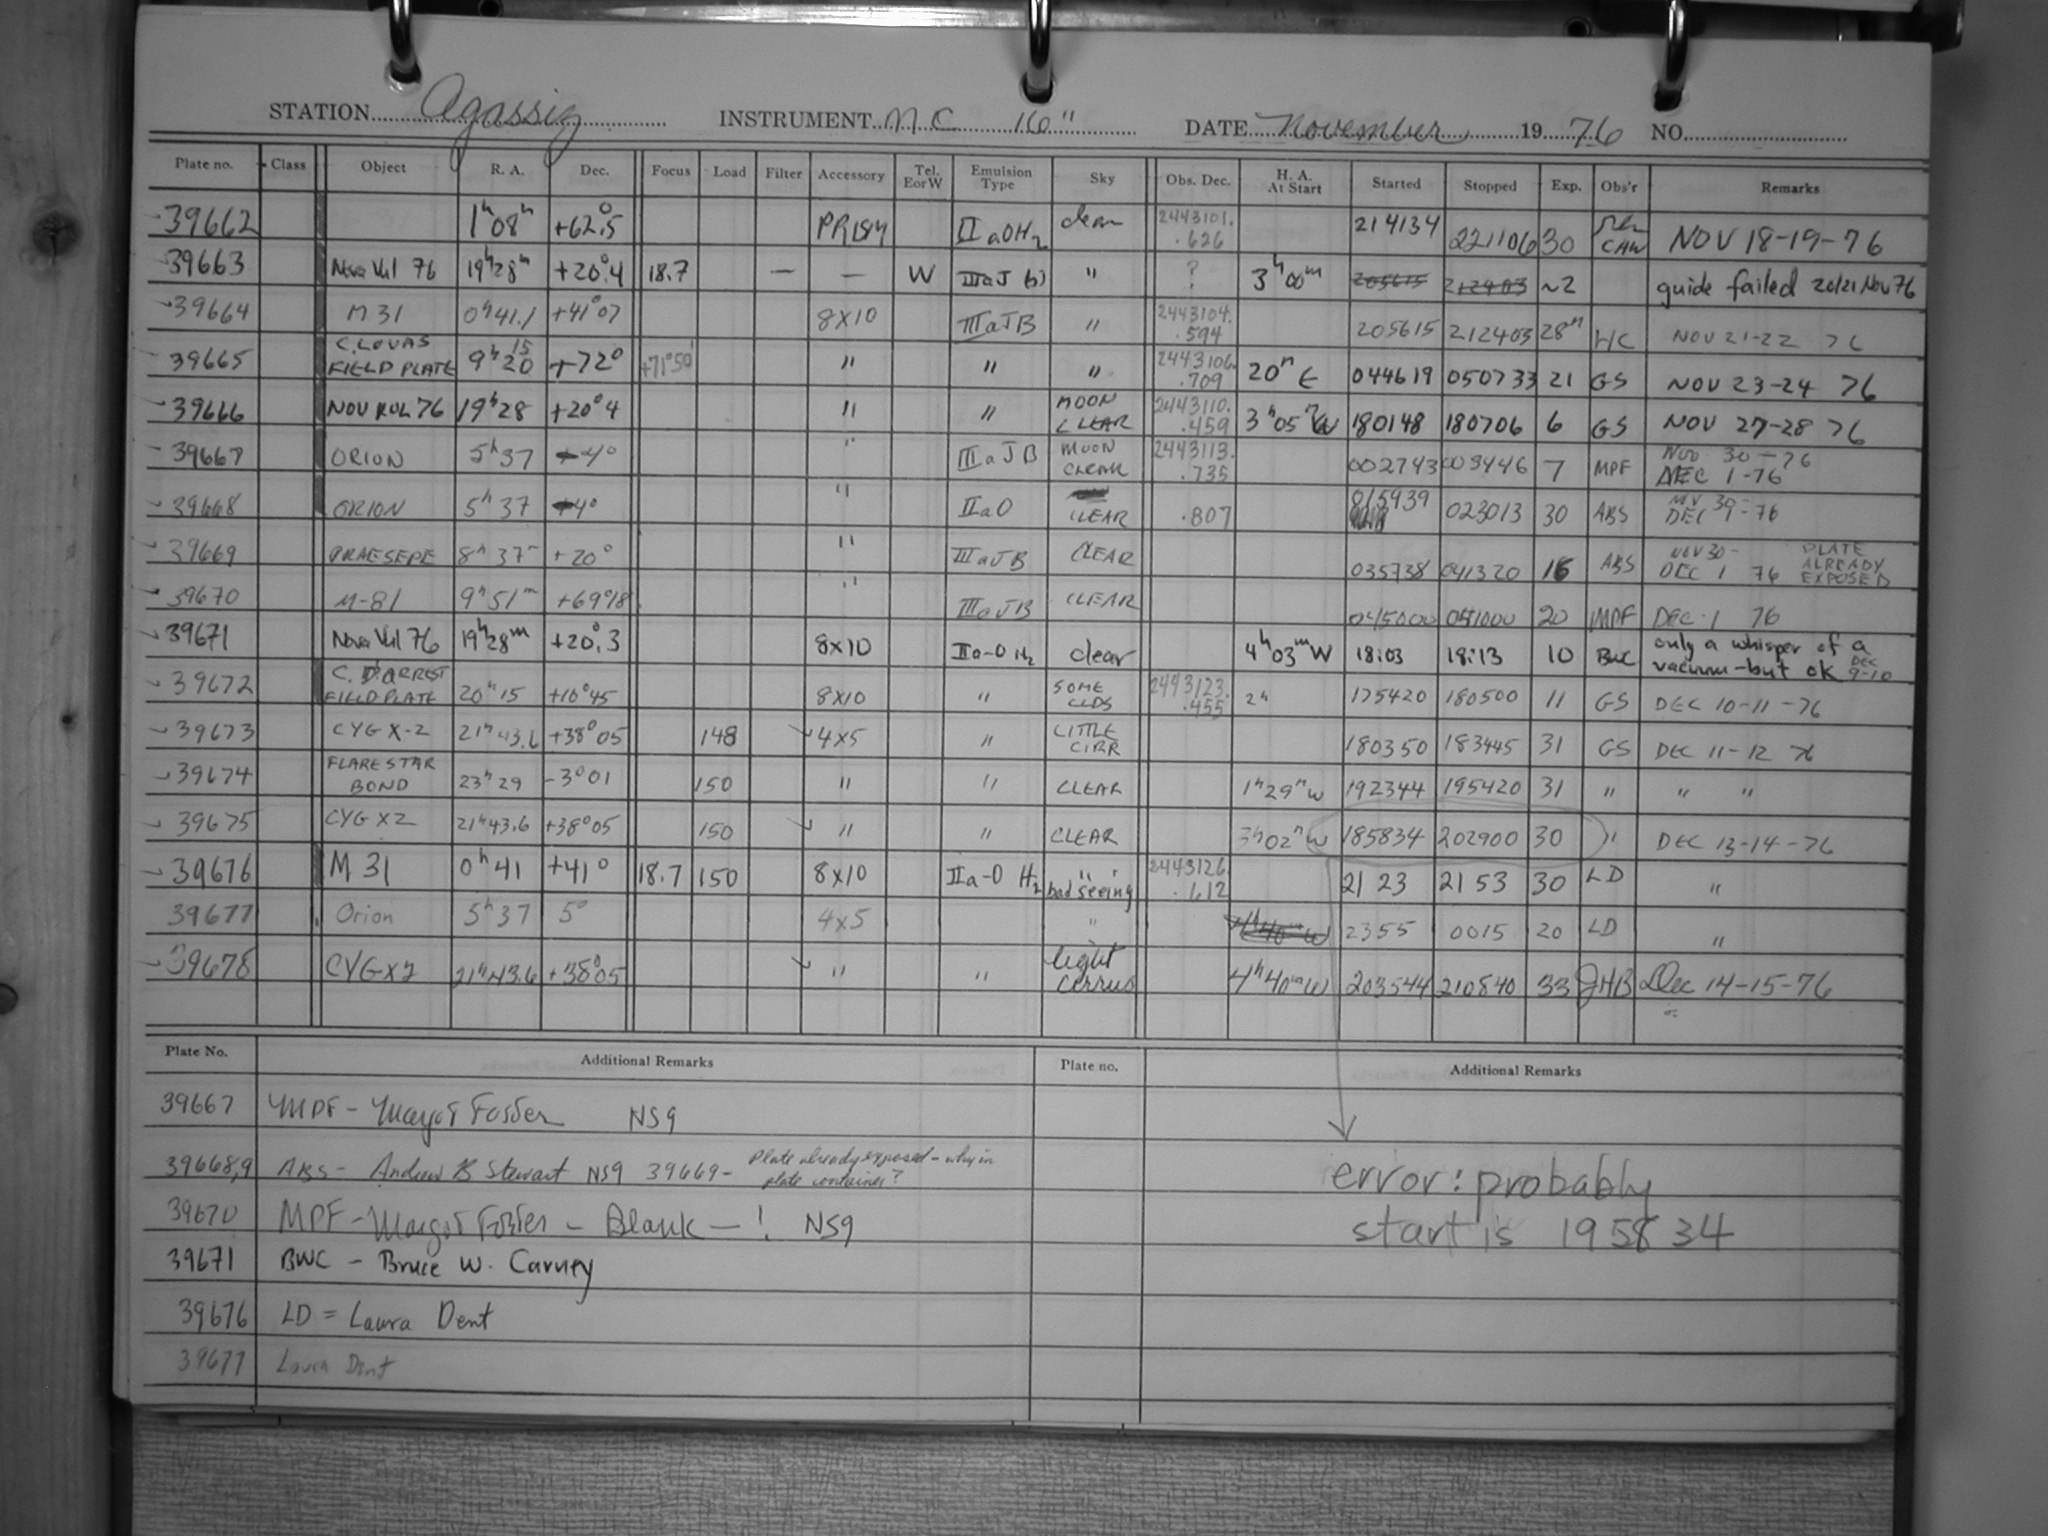 STATION Agassiz INSTRUMENT MC 16" DATE November 19 76 NO.
Plate no. Class Object R. A. Dec. Focus Load Filter Accessory Tel. E or W Emulsion Type Sky Obs. Dec. H. A. At Start Started Stopped Exp. Obs'r Remarks
39662 1h08m +62°.5 PRISM IIaOH2 clear 2443101.626 214134 221106 30 CAW NOV 18-19-76
39663 Nova Vul 76 19h28m +20°.4 18.7 — — W IIIaJ b) " ? 3h00m 205615 212403 ~2 guide failed 20/21 Nov 76
39664 M31 0h41.1 +41°07 8X10 IIIaJB " 2443104.594 205615 212403 28m WC NOV 21-22 76
39665 C. LOVAS FIELD PLATE 9h20 15 +72° +71°50' " " " 2443106.709 20m E 044619 050733 21 GS NOV 23-24 76
39666 NOV VUL 76 19h28 +20°4 " " MOON CLEAR 2443110.459 3h05m W 180148 180706 6 GS NOV 27-28 76
39667 ORION 5h37 -4° " IIIaJB MOON CLEAR 2443113.735 002743 003446 7 MPF NOV 30-76 DEC 1-76
39668 ORION 5h37 4° " IIaO CLEAR .807 015939 023013 30 ABS NV 30- DEC 1-76
39669 PRAESEPE 8h37m +20° " IIIaJB CLEAR 035738 041320 16 ABS NOV 30- DEC 1 76 PLATE ALREADY EXPOSED
39670 M-81 9h51m +69°18 " IIIaJB CLEAR 045000 051000 20 MPF DEC-1 76
39671 Nova Vul 76 19h28m +20°.3 8X10 IIa-O H2 clear 4h03mW 18:03 18:13 10 BWC only a whisper of a vacuum-but ok DEC 9-10
39672 C. D'ARREST FIELD PLATE 20h15 +10°45 8X10 " SOME CLDS 2443123.455 2h 175420 180500 11 GS DEC 10-11-76
39673 CYG X-2 21h43.6 +38°05 148 4X5 " LITTLE CIRR 180350 183445 31 GS DEC 11-12 76
39674 FLARE STAR BOND 23h29 -3°01 150 " " CLEAR 1h29mW 192344 195420 31 " " "
39675 CYG X2 21h43.6 +38°05 150 " " CLEAR 3h02mW 185834 202900 30 " DEC 13-14-76
39676 M 31 0h41 +41° 18.7 150 8X10 IIa-O H2 " bad seeing 2443126.612 21 23 21 53 30 LD "
39677 Orion 5h37 5° 4X5 " 2355 0015 20 LD "
39678 CYG X2 21h43.6 +38°05 " " light cirrus 4h40mW 203544 210840 33 JHB Dec 14-15-76
Plate No. Additional Remarks Plate no. Additional Remarks
39667 MPF - Margot Foster NS9
39668,9 ABS - Andrew B Stewart NS9 39669- Plate already exposed - why in plate container?
39670 MPF - Margot Foster - Blank - ! NS9
39671 BWC - Bruce W. Carney
39676 LD = Laura Dent
39677 Laura Dent
error: probably
start is 195834